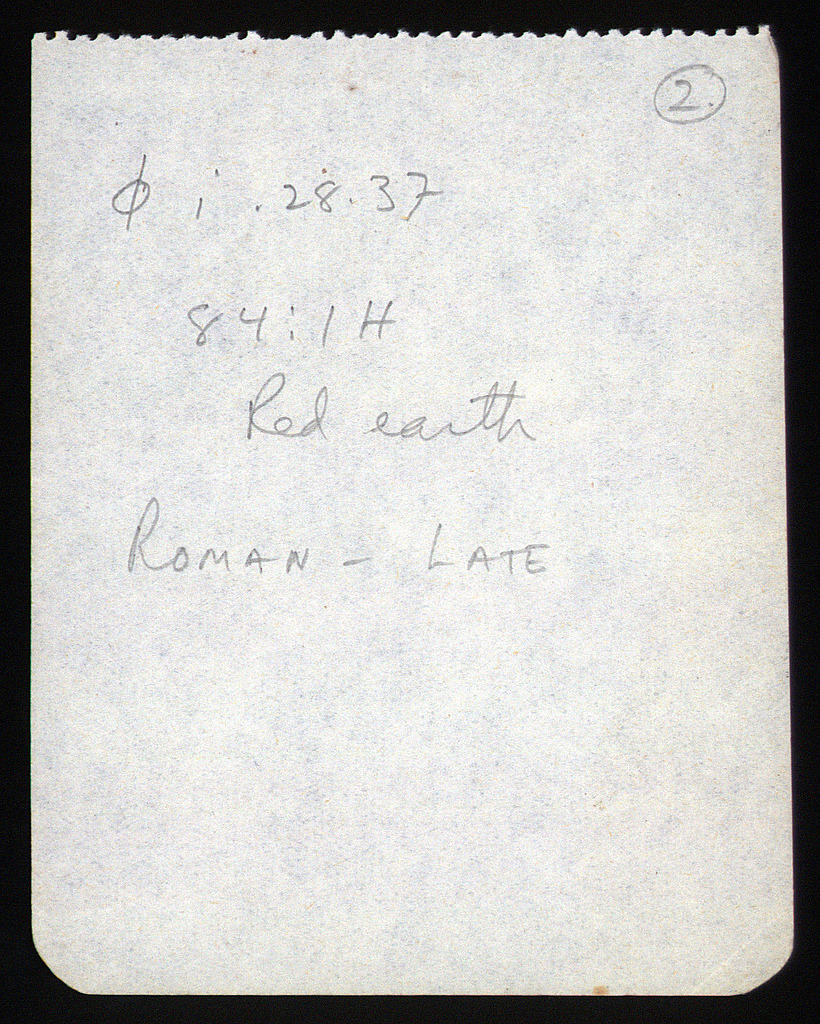 2.
φ i .28.37
84:1H
Red earth
ROMAN - LATE